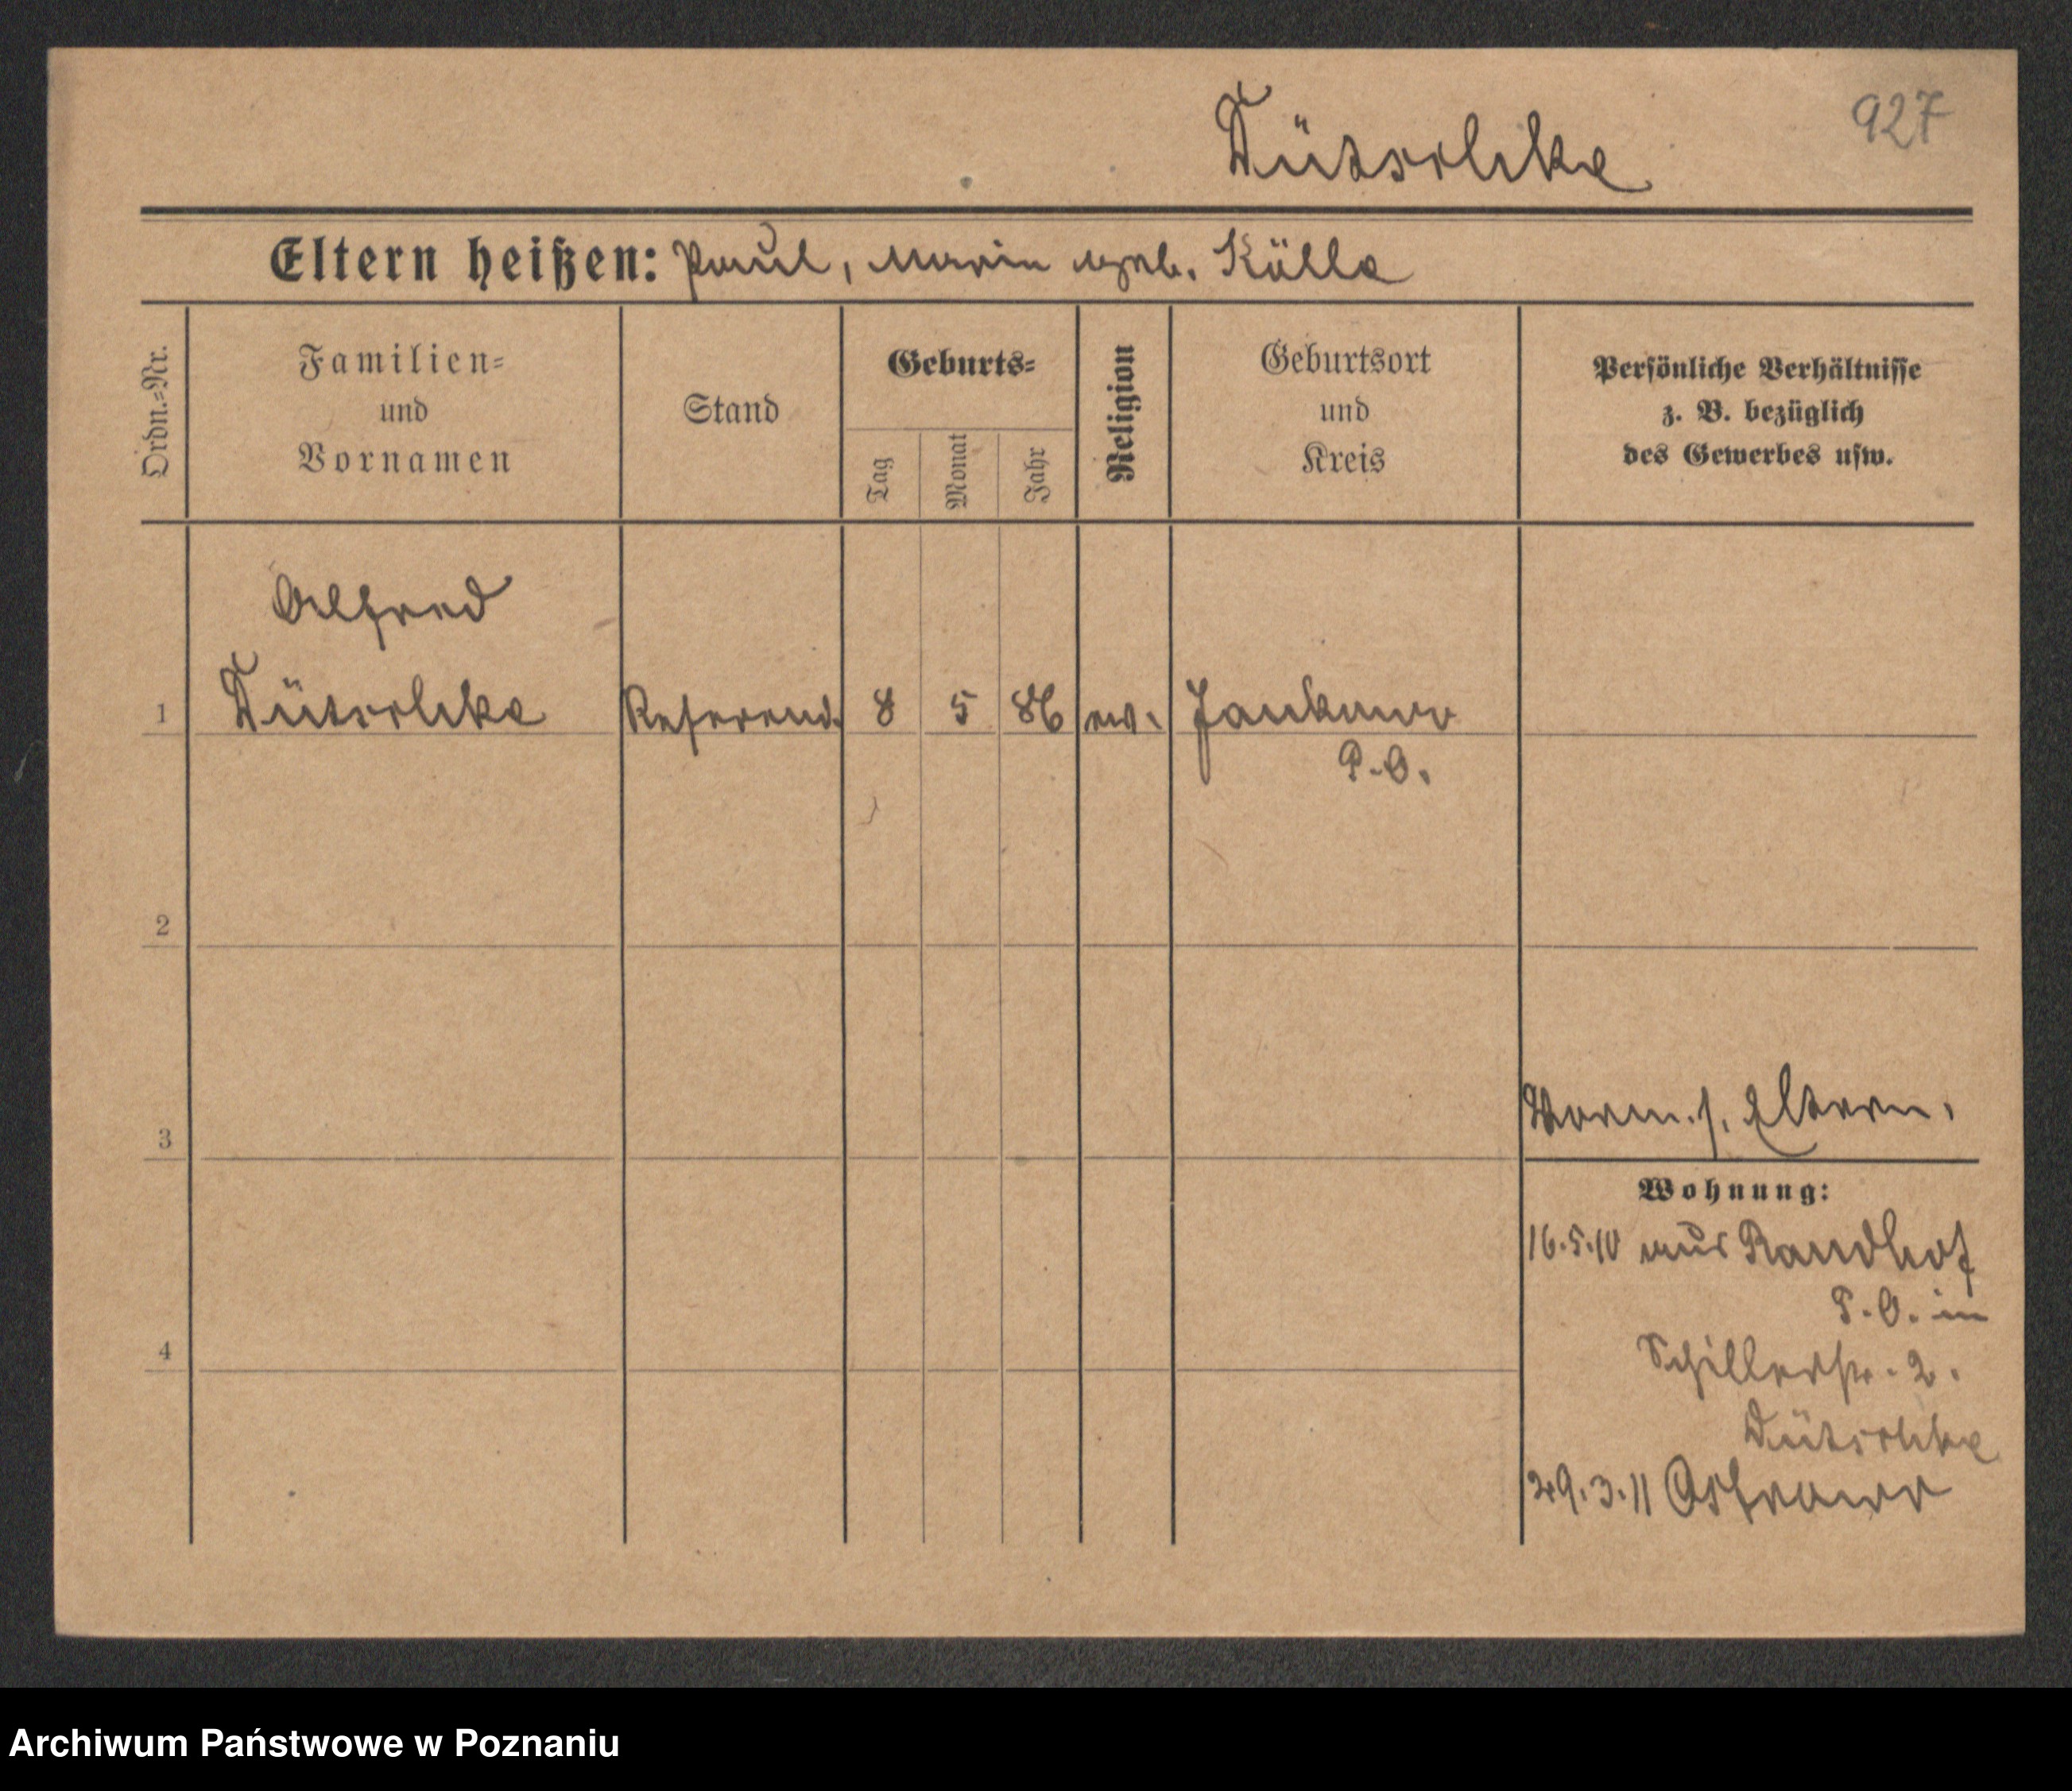 927
Dütschke
Eltern heißen: Paul, Marie geb. Kölle
Ordn.-Nr.
Familien-
und
Vornamen
Stand
Geburts-
Tag
Monat
Jahr
Religion
Geburtsort
und
Kreis
Persönliche Verhältnisse
z. B. bezüglich
des Gewerbes usw.
Alfred
1 Dütschke Referend. 8 5 86 ev. Jankowo
P.O.
2
3
s. Eltern.
Wohnung:
16.5.10 aus Randhof
P.O. in
Schillerstr. 2.
Dütschke
4
29.3.11 Ostrowo
Archiwum Państwowe w Poznaniu